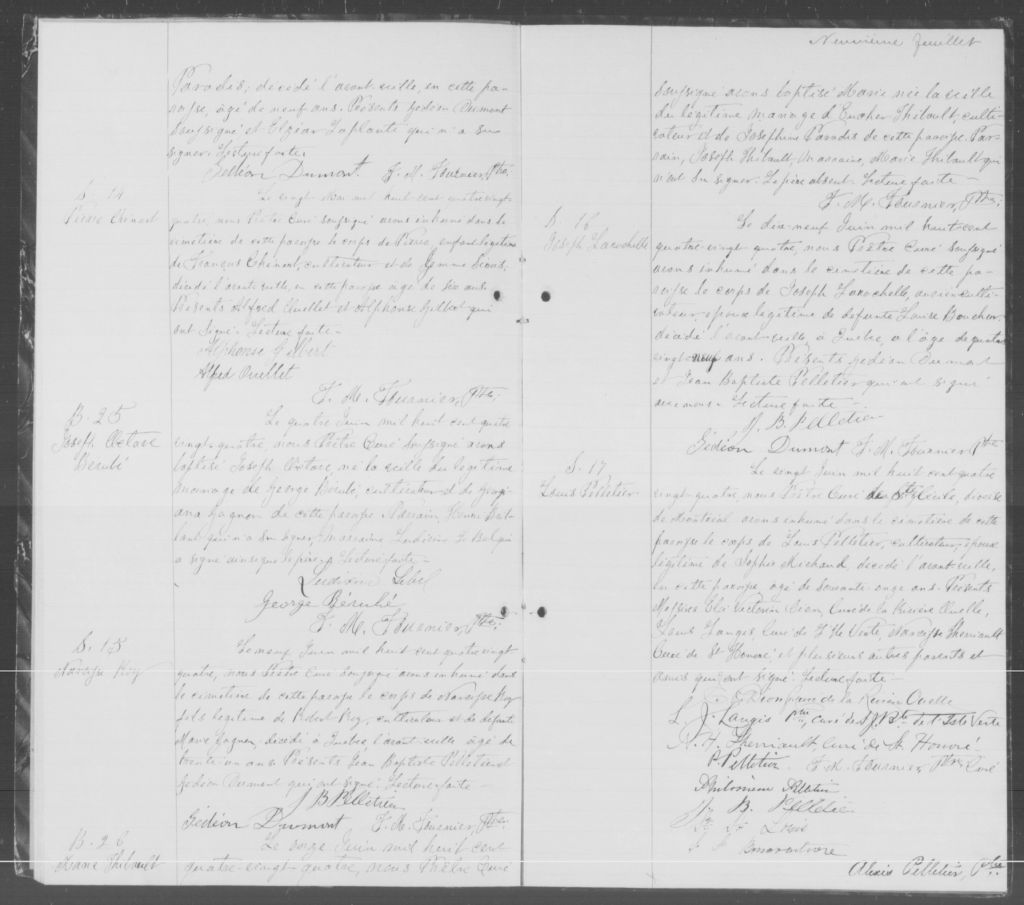 Paradis, décédé l'avant veille, en cette pa-
roisse, âgé de neuf ans. Présents Gédéon Dumont
soussigné et Elzéar Laplante qui n'a su
signer. Lecture faite.
Gédéon Dumont F. M. Fournier, Ptre.
S. 14
Le vingt mil huit cent quatre vingt
quatre, nous Prêtre Curé soussigné avons inhumé dans le
cimetière de cette paroisse le corps de enfant légitime
de François cultivateur et de
décédé l'avant veille, en cette paroisse âgé de six ans
Présents Alfred Ouellet et Alphonse Gilbert qui
ont signé. Lecture faite -
Alphonse Gilbert
Alfred Ouellet
F. M. Fournier, Ptre.
B. 25
Joseph Octave
Bérubé
Le quatre Juin mil huit cent quatre
vingt-quatre, nous Prêtre Curé soussigné avons
baptisé Joseph Octave, né la veille du légitime
mariage de George Bérubé, cultivateur et de Georgi-
ana Gagnon de cette paroisse Parrain
qui n'a su signer, Marraine qui
a signé ainsi que le père. Lecture faite -
George Bérubé
F. M. Fournier, Ptre.
S. 15
Narcisse Roy
Le neuf Juin mil huit cent quatre vingt
quatre, nous Prêtre Curé soussigné avons inhumé dans
le cimetière de cette paroisse le corps de Narcisse Roy
fils légitime de Roy, cultivateur et de défunte
Marie Gagnon, décédé à l'avant-veille âgé de
trente un ans Présents Jean Baptiste Pelletier et
Gédéon Dumont qui ont signé Lecture faite -
J B Pelletier
Gédéon Dumont F. M. Fournier, Ptre.
B. 26
Marie Thibault
Le onze Juin mil huit cent
quatre-vingt-quatre, nous Prêtre Curé
Neuvième feuillet
soussigné avons baptisé Marie née la veille
du légitime mariage d'Eucher Thibault, culti-
vateur et de Joséphine Paradis de cette paroisse. Par-
rain, Joseph Thibault, Marraine, Marie Thibault qui
n'ont su signer. Le père absent. Lecture faite -
F. M. Fournier, Ptre.
S. 16
Joseph Larochelle
Le dix-neuf Juin mil huit cent
quatre-vingt-quatre, nous Prêtre Curé soussigné
avons inhumé dans le cimetière de cette pa-
roisse le corps de Joseph Larochelle, ancien culti-
vateur, époux légitime de défunte Louise Boucher
décédé l'avant-veille, à l'âge de quatre
vingt neuf ans. Présents Gédéon Dumont
et Jean Baptiste Pelletier qui ont signé
avec nous. Lecture faite -
J. B. Pelletier
Gédéon Dumont F. M. Fournier Ptre
S. 17
Louis Pelletier
Le vingt Juin mil huit cent quatre
vingt-quatre, nous Prêtre Curé de Ste Cécile, diocèse
de Montréal avons inhumé dans le cimetière de cette
paroisse le corps de Louis Pelletier, cultivateur, époux
légitime de Sophie Michaud décédé l'avant-veille,
en cette paroisse âgé de soixante onze ans. Présents
Messires Victorin Dion, Curé de la Rivière Ouelle,
Louis Langis Curé de l'Ile Verte, Narcisse Therriault
Curé de St Honoré et plusieurs autres parents et
amis qui ont signé Lecture faite -
Dion Curé de la Rivière Ouelle
L. J. Langis Ptre, curé de St J. Bte de l'Isle Verte
N. H. Therriault Curé de St Honoré
P. Pelletier F. M. Fournier, Ptre Curé
Philomène Pelletier
J. B. Pelletier
Alexis Pelletier, Ptre